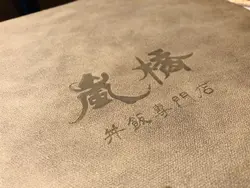 嵐
丼飯專門店